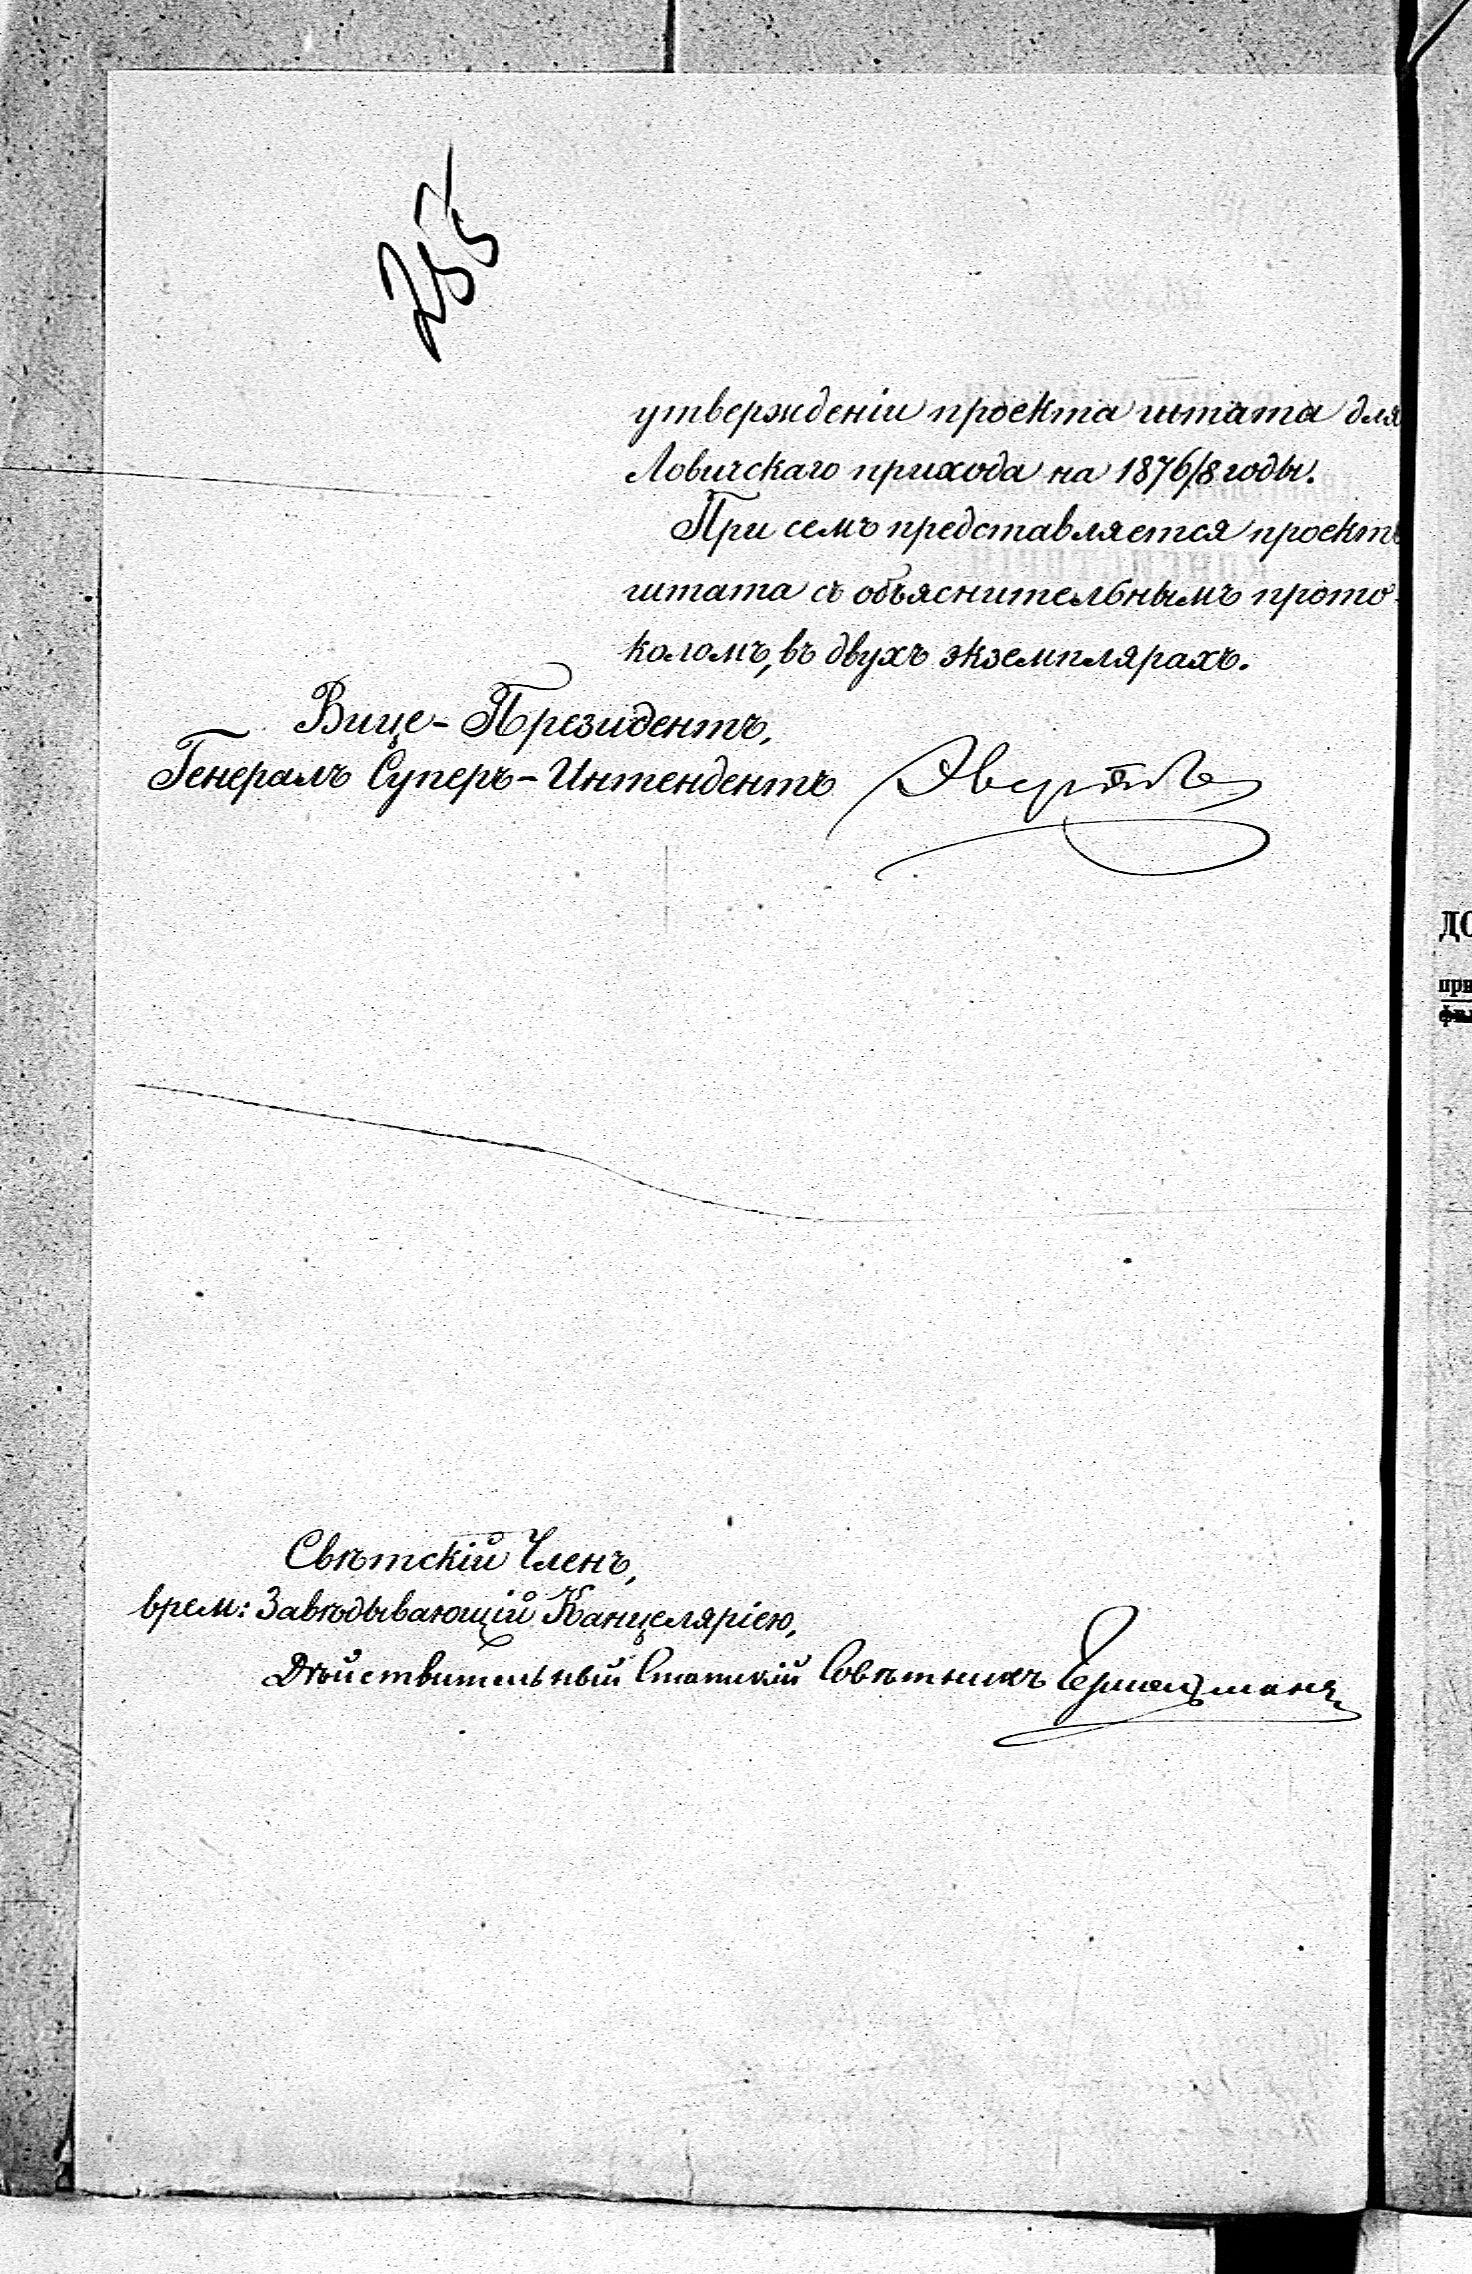 255
утвержденіи проекта штата для
Ловичскаго прихода на 1876/8 годы.
При семъ представляется проектъ
штата съ объяснительнымъ прото-
коломъ, въ двухъ экземплярахъ.
Вице-Президентъ,
Генералъ Суперъ-Интендентъ Эвертъ
Свѣтскій Членъ,
врем: Завѣдывающій Канцеляріею,
Дѣйствительный Статскій Совѣтникъ
ДО
при